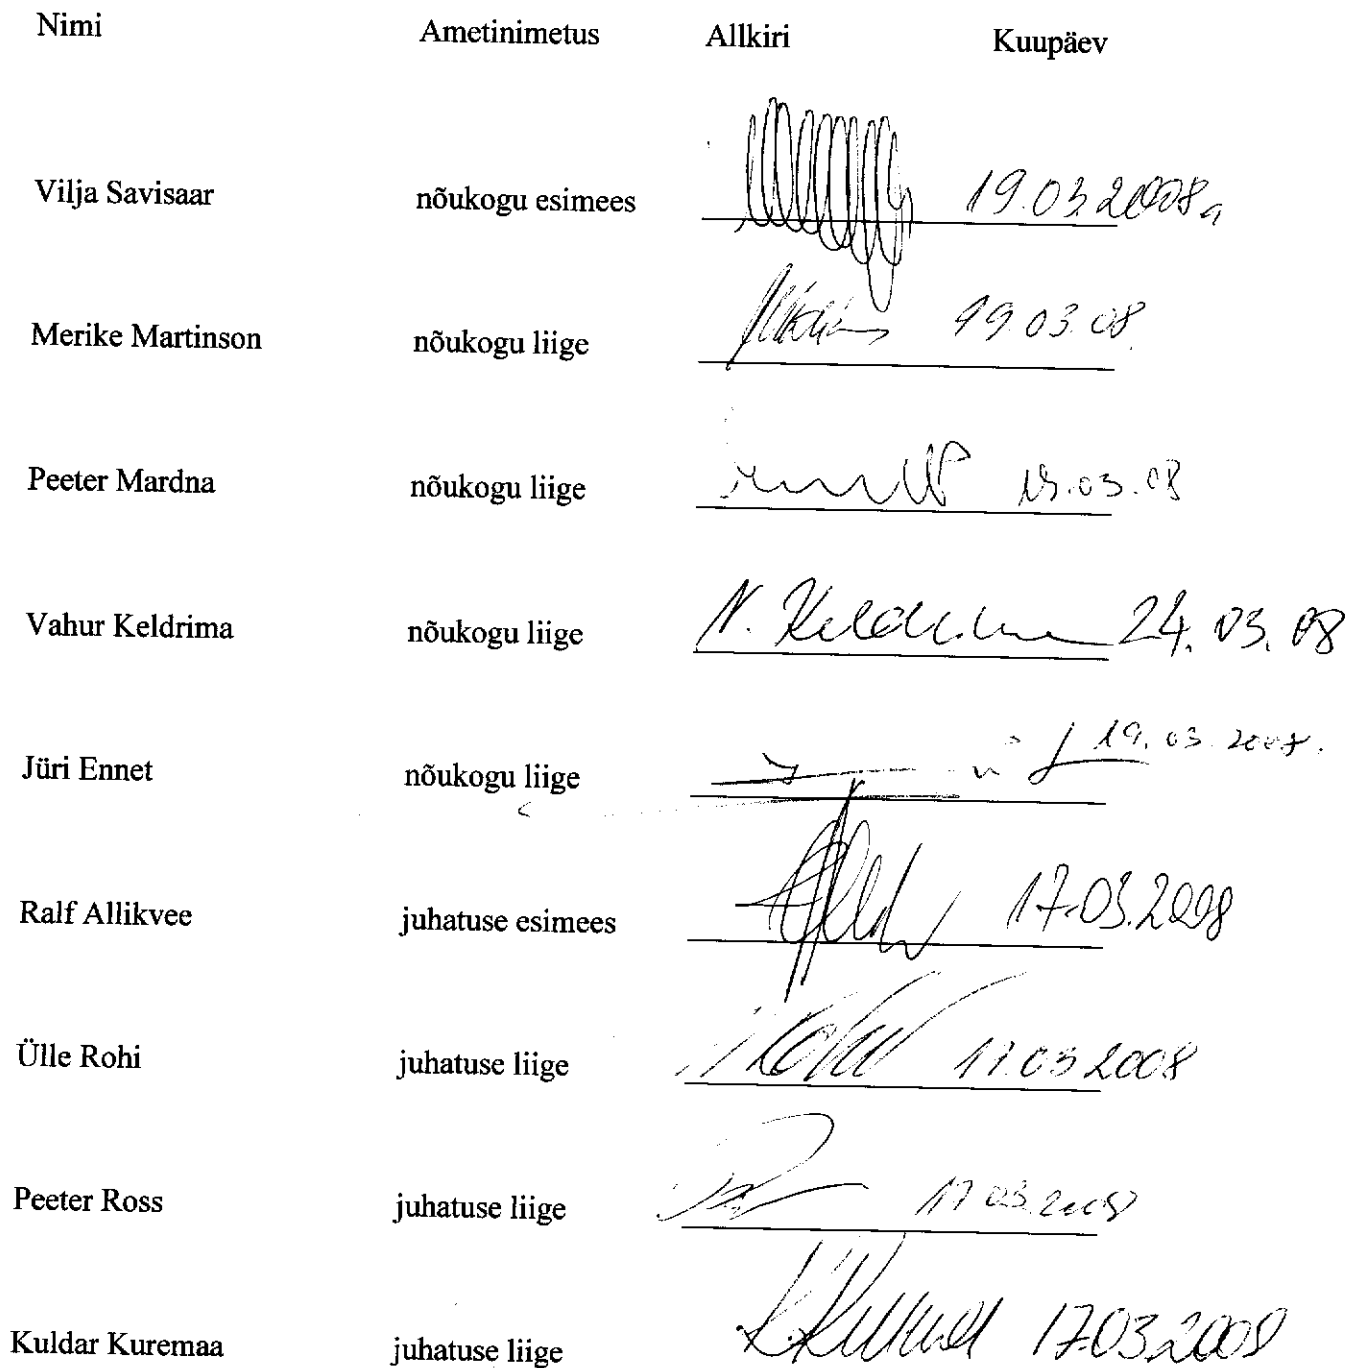 Nimi Ametinimetus Allkiri Kuupäev
Vilja Savisaar nõukogu esimees 19.03.2008a
Merike Martinson nõukogu liige 19.03.08.
Peeter Mardna nõukogu liige 19.03.08
Vahur Keldrima nõukogu liige V. Keldrima 24.03.08
Jüri Ennet nõukogu liige 19.03.2008.
Ralf Allikvee juhatuse esimees 17.03.2008
Ülle Rohi juhatuse liige 17.03.2008
Peeter Ross juhatuse liige 17.03.2008
Kuldar Kuremaa juhatuse liige 17.03.2008